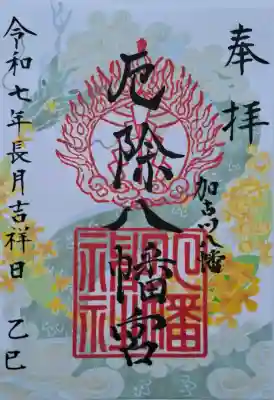 奉拝
加古川八幡
厄除八幡宮
八幡神社
令和七年長月吉祥日 乙巳